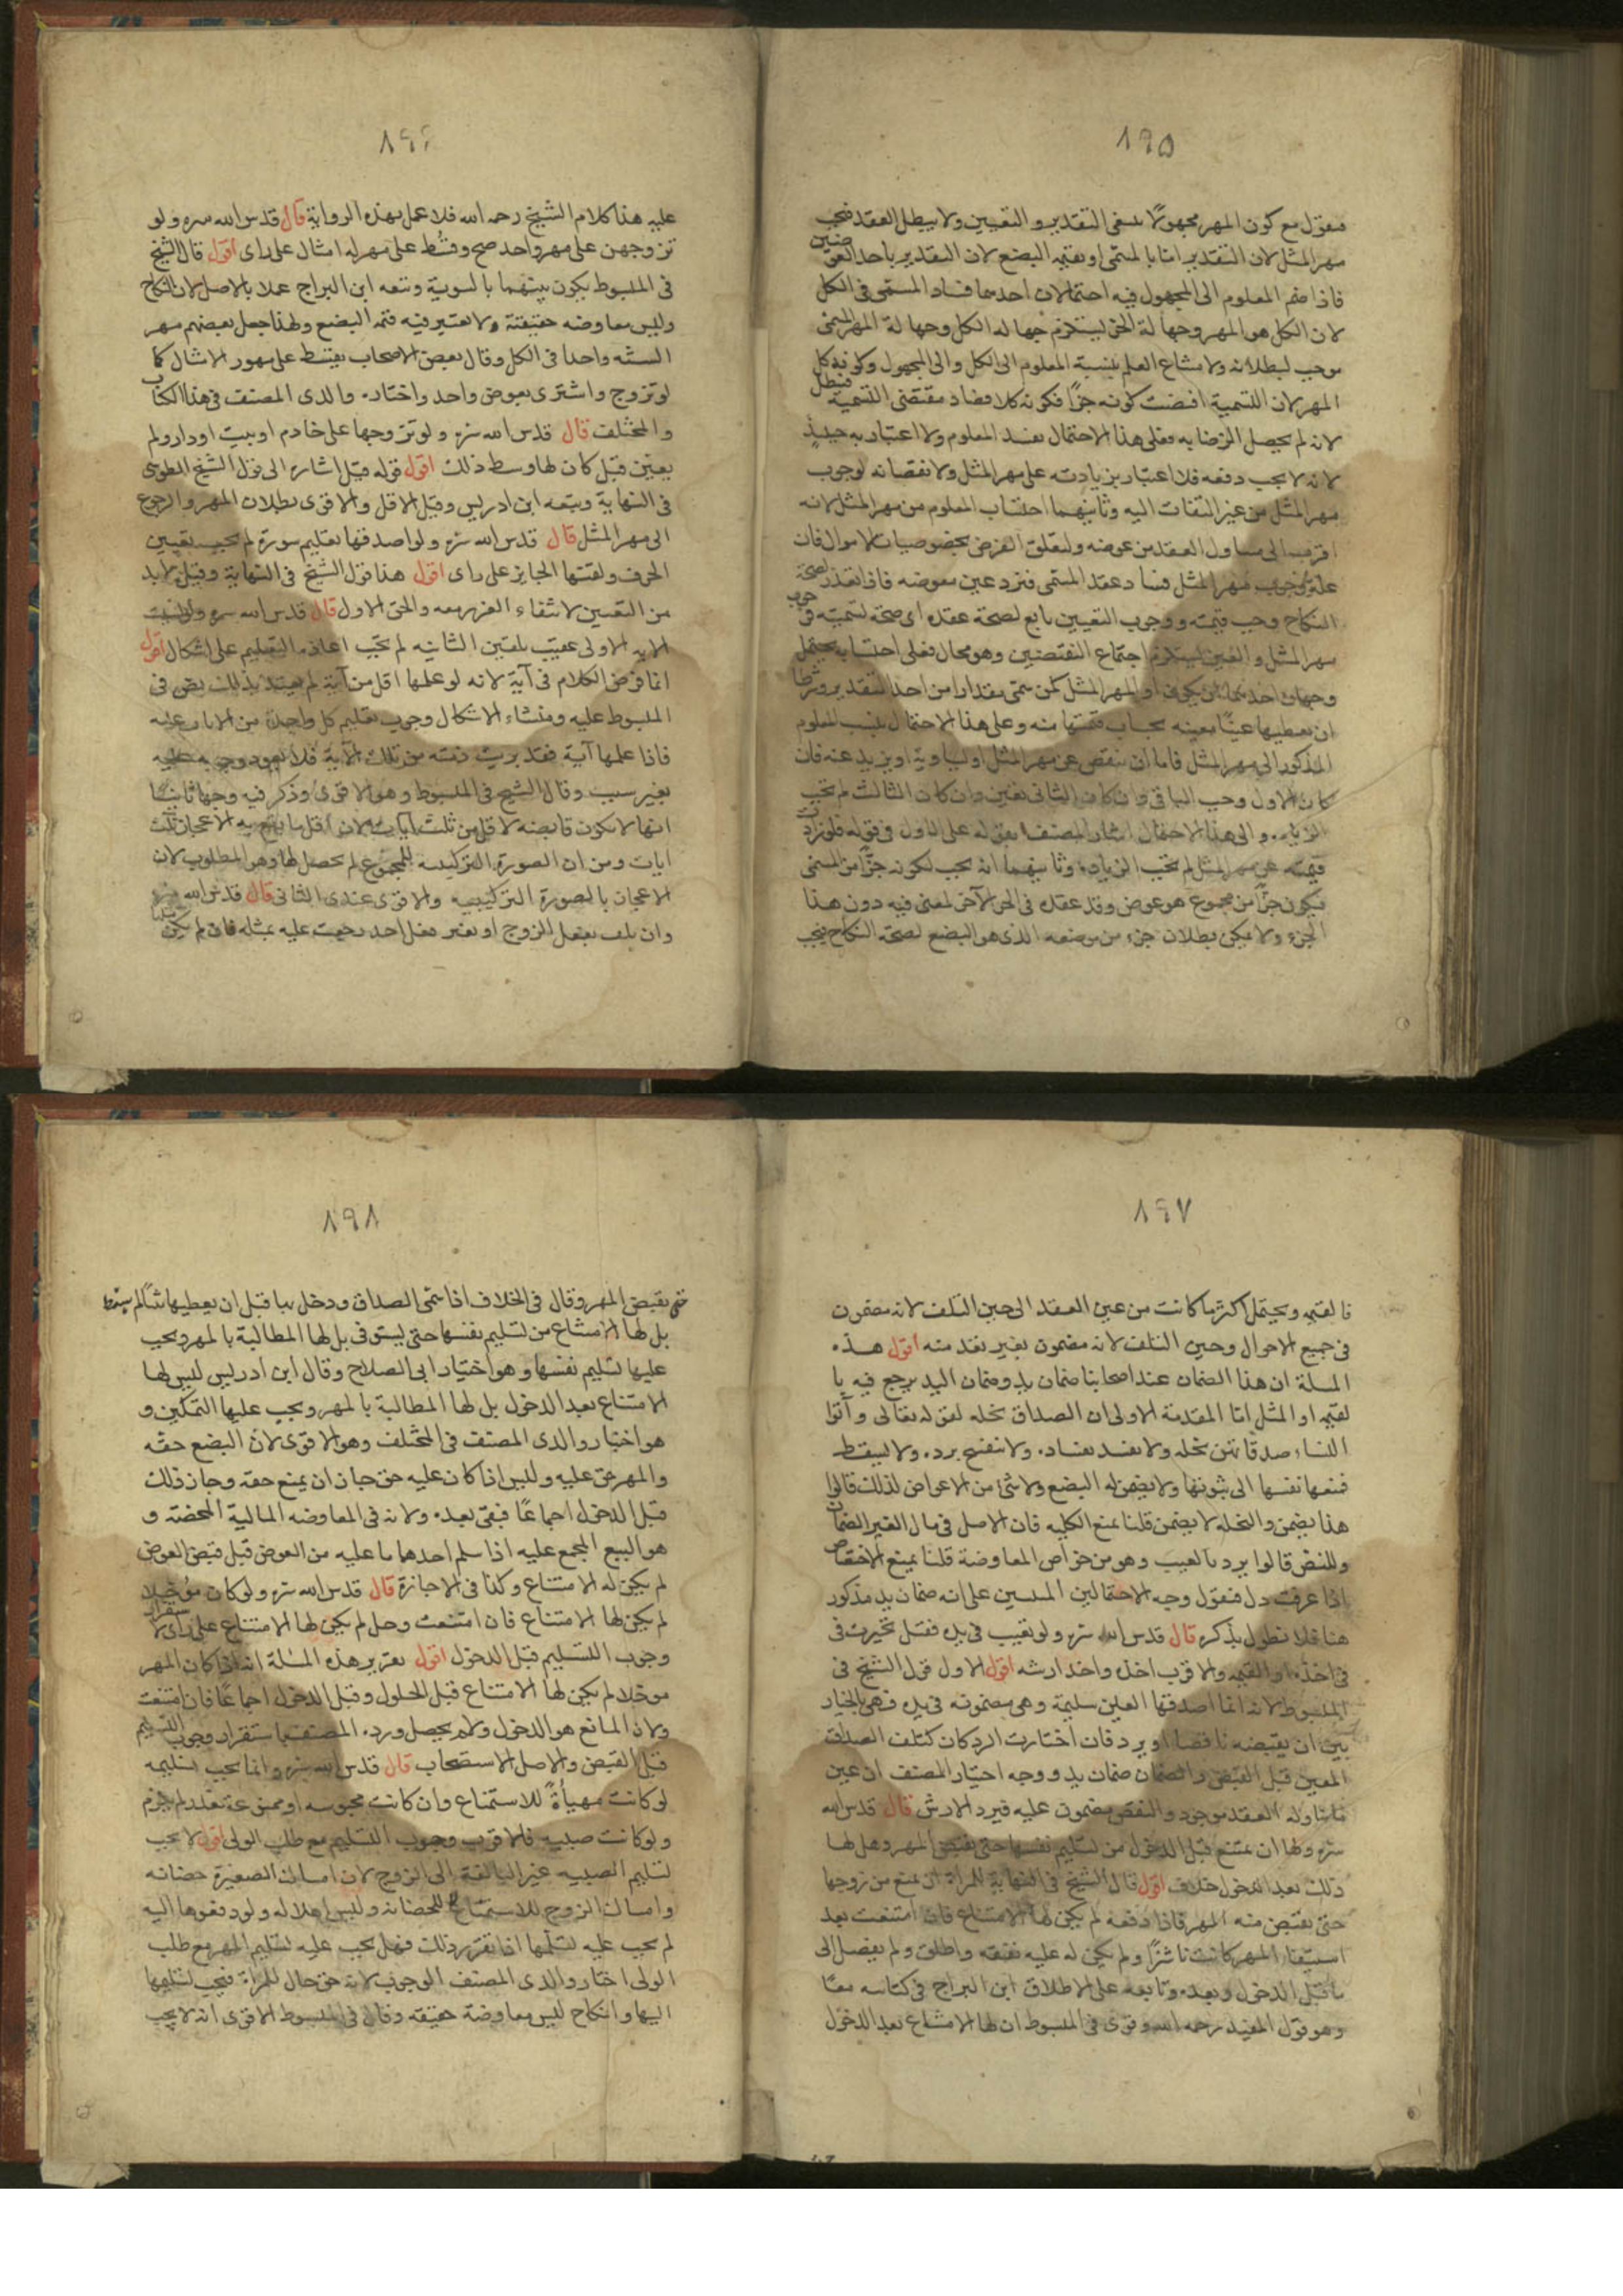 ٨٩٥
فنقول مع كون المهر مجهولا ينتفى التقدير والتعيين ولا يبطل العقد فيجب
مهر المثل لان التقدير اما بالمسمى او بقيمة البضع لان التقدير باحد العوضين
فاذا ضم المعلوم الى المجهول فيه احتمالان احدهما فساد المسمى فى الكل
لان الكل هو المهر وجهالة الجزء يستلزم جهالة الكل وجهالة المهر المسمى
موجب لبطلانه ولامتناع العلم بنسبة المعلوم الى الكل والى المجهول وكونه كل
المهر لان التسمية اقتضت كونه جزأ فكونه كلا مضاد مقتضى التسمية فتبطل
لانه لم يحصل الرضا به فعلى هذا الاحتمال يفسد المعلوم ولا اعتبار به حينئذ
لانه لا يجب دفعه فلا اعتبار بزيادته على مهر المثل ولا نقصانه لوجوب
مهر المثل من غير التفات اليه وثانيهما احتساب المعلوم من مهر المثل لانه
اقرب الى العقد من عوضه ولتعلق الغرض بخصوصيات الاموال فان
علة وجوب مهر المثل فساد عقد المسمى فترد عين معوضه فاذا تعذر لصحة
النكاح وجب قيمته ووجوب التعيين تابع لصحة عقده اى صحة تسميته فوجوب
مهر المثل والعين يستلزم اجتماع النقيضين وهو محال فعلى احتسابه يحتمل
وجهان احدهما ان يكون المهر المثل كمن سمى مقدارا من احد النقدين وشرط
ان يعطيها عينا معينة بحساب قيمتها منه وعلى هذا الاحتمال ينسب المعلوم
المذكور الى مهر المثل فاما ان ينقص عن مهر المثل او يساويه او يزيد عنه فان
كان الاول وجب الباقى وان كان الثانى تعين وان كان الثالث لم تجب
الزيادة والى هذا الاحتمال اشار المصنف بقوله على الاول فى قوله فلو زادت
قيمته عن مهر المثل لم تجب الزيادة وثانيهما انه يجب لكونه جزأ من المسمى
فيكون جزأ من مجموع هو عوض وقد عقد فى الجزء الآخر لمعنى فيه دون هذا
الجزء ولا يمكن بطلان جزء من معوضه الذى هو البضع لصحة النكاح فيجب
٨٩٦
عليه هذا كلام الشيخ رحمه الله فلا عمل بهذه الرواية قال قدس الله سره ولو
تزوجهن على مهر واحد صح وقسط على مهر امثال على راى اقول قال الشيخ
فى المبسوط يكون بينهما بالسوية وتبعه ابن البراج عملا بالاصل لان النكاح
وليس معاوضه حقيقة ولا تعتبر فيه قيمة البضع ولهذا جعل بعضهم مهر
السنه واحدا فى الكل وقال بعض الاصحاب يقسط على مهور الامثال كما
لو تزوج واشترى بعوض واحد واختاره والدى المصنف فى هذا الكتاب
والمختلف قال قدس الله سره ولو تزوجها على خادم او بيت او دار ولم
يعين قيل كان لها وسط ذلك اقول قوله قيل اشاره الى قول الشيخ الطوسى
فى النهاية وتبعه ابن ادريس وقيل الاقل والاقوى بطلان المهر والرجوع
الى مهر المثل قال قدس الله سره ولو اصدقها تعليم سورة لم يجب تعيين
الحرف ولقنها الجايز على راى اقول هذا قول الشيخ فى النهاية وقيل لا بد
من التعيين لانتفاء الغرر معه والحق الاول قال قدس الله سره ولو نسيت
الايه الاولى عقيب تلقين الثانيه لم تجب اعادة التعليم على اشكال اقول
انما فرض الكلام فى آية لانه لو علمها اقل من آية لم يعتد بذلك نص فى
المبسوط عليه ومنشاء الاشكال وجوب تعليم كل واحدة من الايات عليه
فاذا علمها آية فقد برئت ذمته من تلك الآية فلا يعود وجوبه عليه
بغير سبب وقال الشيخ فى المبسوط وهو الاقوى وذكر فيه وجها ثانيا
انها لا تكون قابضه لاقل من ثلث آيات لان اقل ما يقع به الاعجاز ثلث
ايات ومن ان الصورة التركيبيه للمجموع لم يحصل لها وهو المطلوب لان
الاعجاز بالصورة التركيبيه والاقوى عندى الثانى قال قدس الله سره
وان تلف بفعل الزوج او بغير فعل احد رجعت عليه بمثله فان لم يكن مثليا
٨٩٧
فالقيمه ويحتمل اكثر ما كانت من حين العقد الى حين التلف لانه مضمون
فى جميع الاحوال وحين التلف لانه مضمون بغير تعد منه اقول هذه
المسلة ان هذا الضمان عند اصحابنا ضمان يد وضمان اليد يرجع فيه با
لقيمه او المثل اما المقدمة الاولى ان الصداق نحله لقوله تعالى وآتوا
النساء صدقاتهن نحله ولا يفسد بفساده ولا ينفسخ برده ولا يسقط
فمنعها نفسها الى ثبوتها ولا يضمن له البضع ولا شئ من الاعواض لذلك قالوا
هذا يضمن والنحله لا يضمن قلنا نمنع الكليه فان الاصل فى مال الغير الضمان
وللنص قالوا يرد بالعيب وهو من خواص المعاوضة قلنا بمنع الاختصاص
اذا عرفت ذلك فنقول وجه الاحتمالين المبنيين على انه ضمان يد مذكور
هنا فلا نطول بذكره قال قدس الله سره ولو تعيب فى يده فقيل تخيرت فى
فى اخذه او القيمه والاقرب اخذه واخذ ارشه اقول الاول قول الشيخ فى
المبسوط لانه انما اصدقها العين سليمة وهى مضمونه فى يده فهى بالخيار
بين ان يقبضه ناقصا او يرد فان اختارت الرد كان كتلف الصداق
المعين قبل القبض والضمان ضمان يد ووجه اختيار المصنف ان عين
ما تناوله العقد موجود والنقص مضمون عليه فيرد الارش قال قدس الله
سره ولها ان تمتنع قبل الدخول من تسليم نفسها حتى تقبض المهر وهل لها
ذلك بعد الدخول خلاف اقول قال الشيخ فى النهاية للمراة ان تمنع من زوجها
حتى تقبض منه المهر فاذا دفعه لم يكن لها الامتناع فان امتنعت بعد
استيفاء المهر كانت ناشزا ولم يكن له عليه نفقه واطلق ولم يفصل الى
ما قبل الدخول وبعده وتابعه على الاطلاق ابن البراج فى كتابيه معا
وهو قول المفيد رحمه الله وقوى فى المبسوط ان لها الامتناع بعد الدخول
٨٩٨
حتى تقبض المهر وقال فى الخلاف اذا سمى الصداق ودخل بها قبل ان يعطيها شيئا لم
بل لها الامتناع من تسليم نفسها حتى يستوفى بل لها المطالبة بالمهر ويجب
عليها تسليم نفسها وهو اختيار ابى الصلاح وقال ابن ادريس ليس لها
الامتناع بعد الدخول بل لها المطالبة بالمهر ويجب عليها التمكين و
هو اختيار والدى المصنف فى المختلف وهو الاقوى لان البضع حقه
والمهر حق عليه وليس اذا كان عليه حق جاز ان يمنع حقه وجاز ذلك
قبل الدخول اجماعا فبقى بعده ولانه فى المعاوضه المالية المحضة و
هو البيع المجمع عليه اذا سلم احدهما ما عليه من العوض قبل قبض العوض
لم يكن له الامتناع وكذا فى الاجازة قال قدس الله سره ولو كان مؤجلا
لم يكن لها الامتناع فان امتنعت وحل لم يكن لها الامتناع على راى لاستقرار
وجوب التسليم قبل الدخول اقول تقرير هذه المسئلة انه اذا كان المهر
مؤجلا لم يكن لها الامتناع قبل الحلول وقبل الدخول اجماعا فان امتنعت
ولان المانع هو الدخول ولم يحصل ورده المصنف باستقرار وجوب التسليم
قبل القبض والاصل الاستصحاب قال قدس الله سره وانما يجب تسليمه
لو كانت مهيأة للاستمتاع وان كانت محبوسه او ممنوعة بعذر لم يلزم
ولو كانت صبيه فالاقرب وجوب التسليم مع طلب الولى اقول لا يجب
تسليم الصبيه غير البالغة الى الزوج لان امساك الصغيرة حضانه
وامساك الزوج للاستمتاع لا للحضانة وليس اهلا له ولو دفعوها اليه
لم يجب عليه تسلمها اذا تقرر ذلك فهل يجب عليه تسليم المهر مع طلب
الولى اختار والدى المصنف الوجوب لانه حق حال للمراة فيجب تسليمها
اليها والنكاح ليس معاوضة حقيقه وقال فى المبسوط الاقوى انه لا يجب